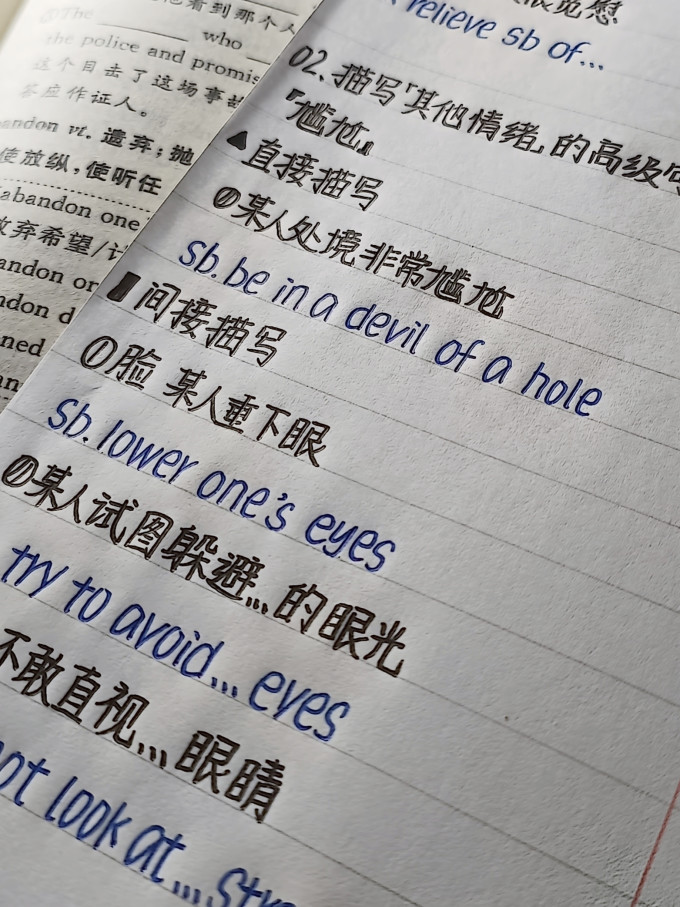 The ______ who
the police and promis
这个目击了这场事故
答应作证人。
andon vt. 遗弃；抛
使放纵，使听任
abandon one
放弃希望/
andon
ndon d
ned
relieve sb of...
02.描写「其他情绪」的高级
『尴尬』
▲直接描写
①某人处境非常尴尬
sb. be in a devil of a hole
■间接描写
①脸 某人垂下眼
sb. lower one's eyes
②某人试图躲避...的眼光
try to avoid... eyes
不敢直视...眼睛
not look at...